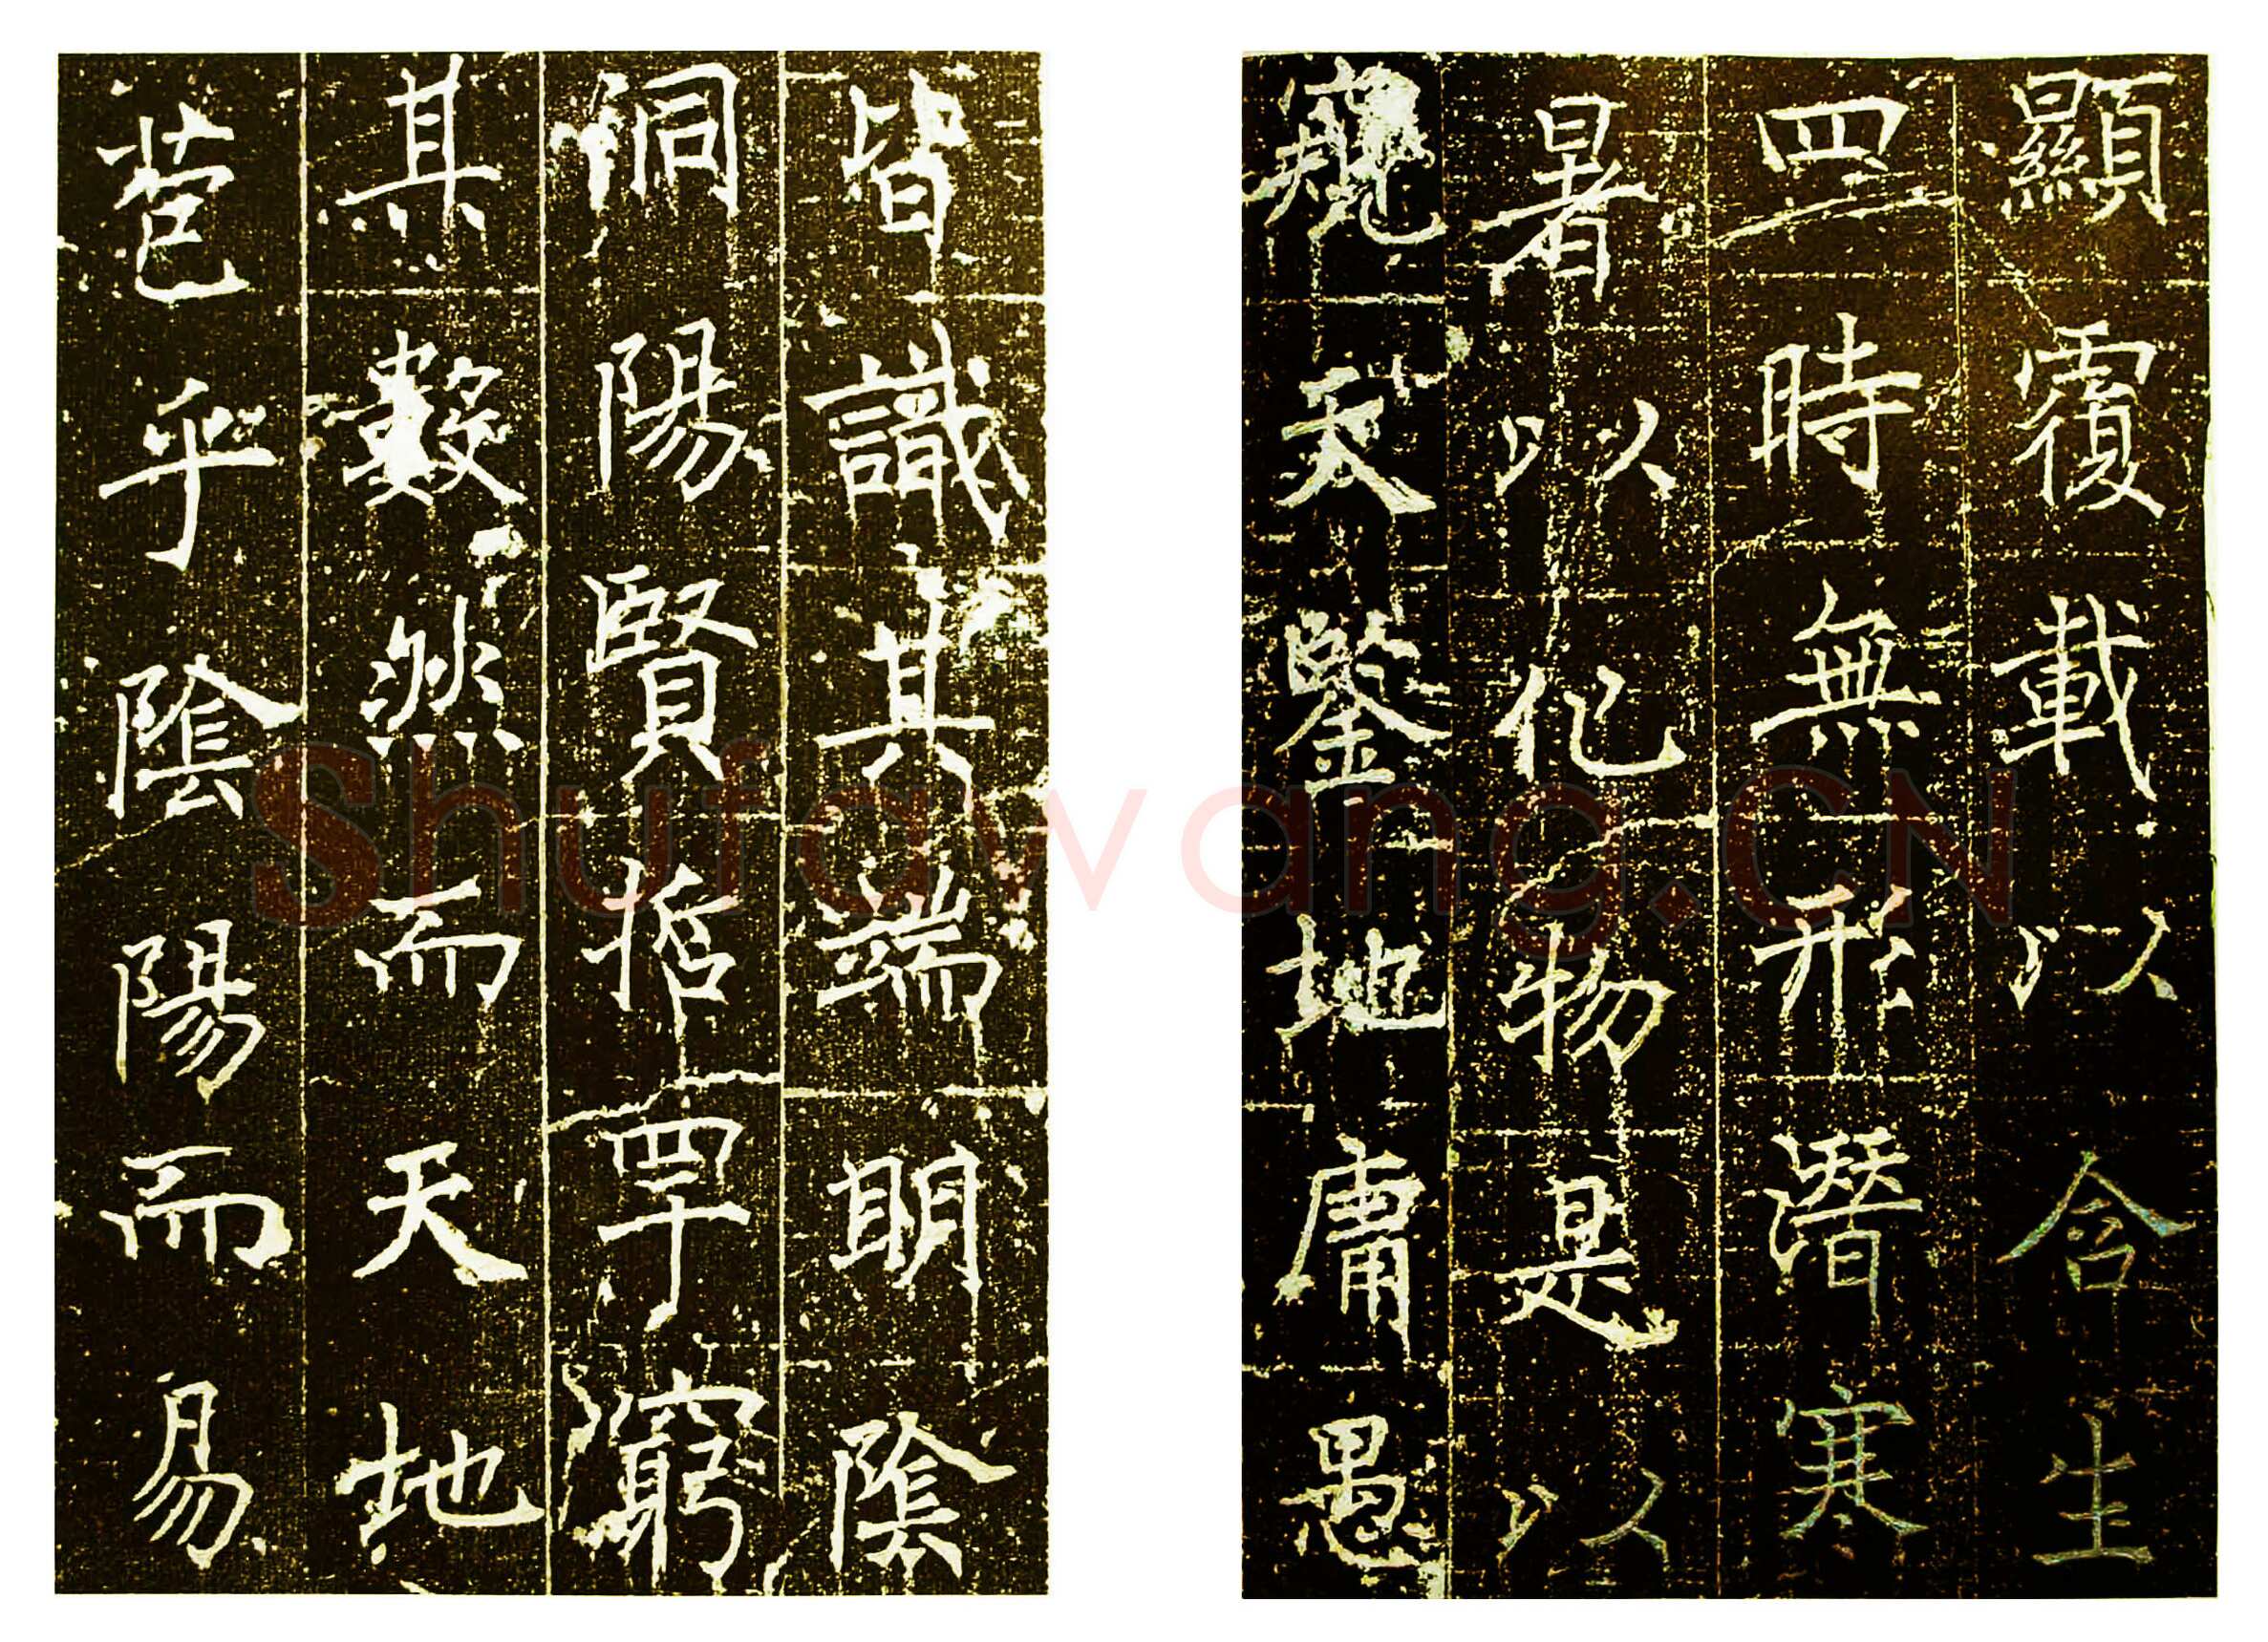 顯覆載以含生
四時無形潛寒
暑以化物是以
窺天鑒地庸愚
皆識其端明陰
洞陽賢哲罕窮
其數然而天地
苞乎陰陽而易
Shufawang.CN